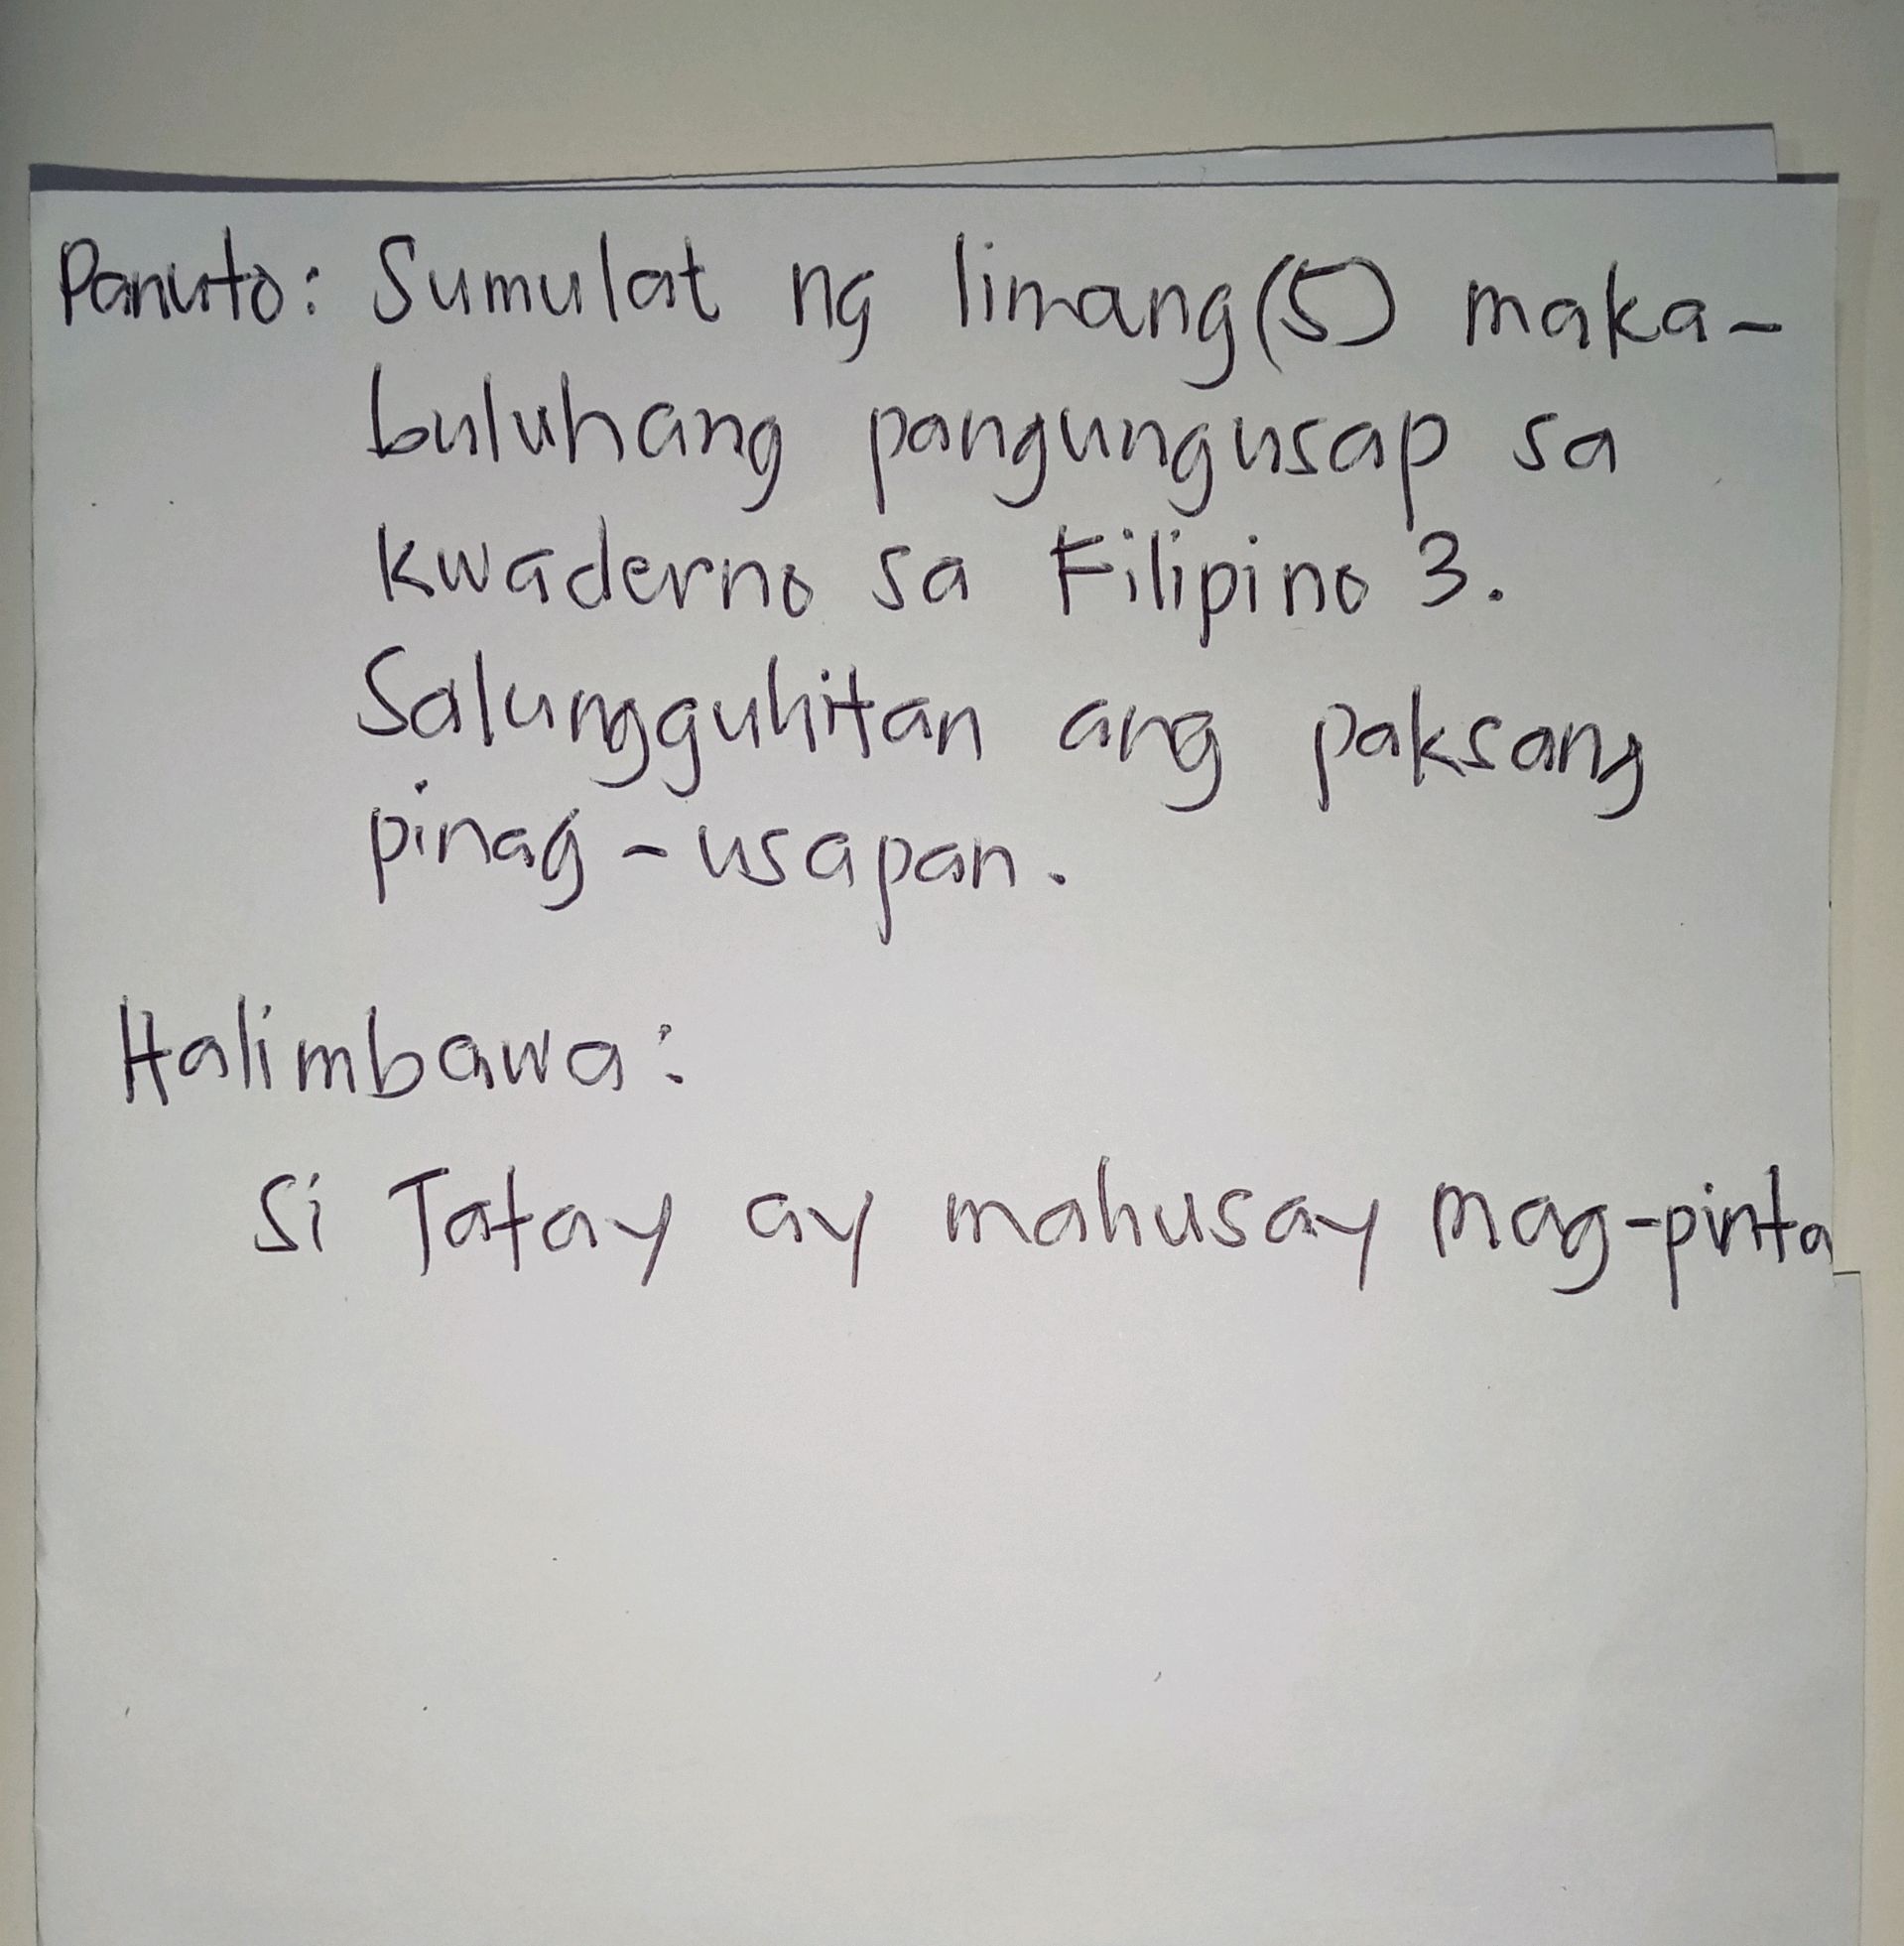 Panuto: Sumulat ng limang (5) maka-
buluhang pangungusap sa
kwaderno sa Filipino 3.
Salungguhitan ang paksang
pinag-usapan.
Halimbawa:
Si Tatay ay mahusay mag-pinta